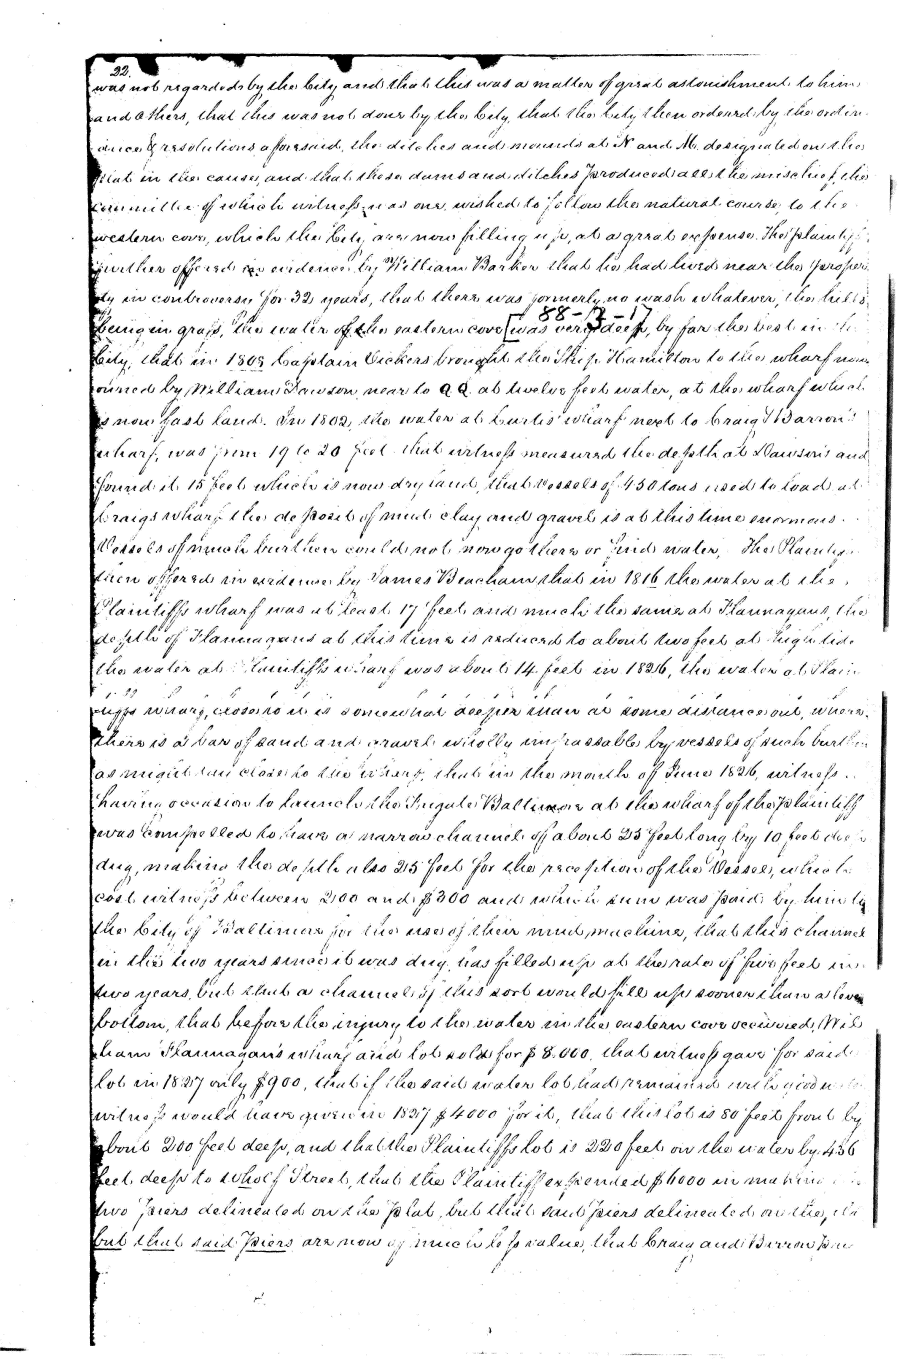 22.
was not regarded by the City and that this was a matter of great astonishment to him
and others, that this was not done by the City, that the City then ordered by the ordin
ance & resolutions aforesaid, the ditches and mounds at N and M. designated on the
plat in the cause, and that these dams and ditches produced all the mischief, the
committee of which witness was one, wished to follow the natural course, to the
western cove, which the City, are now filling up, at a great expense. The plaintiff
further offered in evidence by William Barker that he had lived near the proper
ty in controversy for 32 years, that there was formerly no wash whatever, the hills
88-12-17
being in grass, the water of the eastern cove [was very deep, by far the best in the
City, that in 1809 Captain Vickers brought the Ship Hamilton to the wharf now
owned by William Dawson, near to Q Q. at twelve feet water, at the wharf which
is now fast land. In 1802, the water at Curtis' wharf next to Craig & Barron's
wharf, was from 19 to 20 feet that witness measured the depth at Dawson's and
found it 15 feet which is now dry land, that vessels of 450 tons used to load at
Craigs wharf the deposit of mud clay and gravel is at this time enormous.
Vessels of much burthen could not now go there or find water, The Plaintiff
then offered in evidence by James Beacham that in 1816 the water at the
Plaintiffs wharf was at least 17 feet and much the same at Flannagans, the
depth of Flannagans at this time is reduced to about two feet at high tide
the water at Plaintiffs wharf was about 14 feet in 1826, the water at Plain
tiffs wharf, close to it is somewhat deeper than at some distance out, where
there is a bar of sand and gravel wholly impassable by vessels of such burthen
as might lay close to the wharf, that in the month of June 1826, witness
having occasion to launch the Frigate Baltimore at the wharf of the plaintiff
was compelled to have a narrow channel of about 25 feet long by 10 feet deep
dug, making the depth also 25 feet for the reception of the Vessel, which
cost witness between 200 and $300 and which sum was paid by him to
the City of Baltimore for the use of their mud machine, that this channel
in the two years since it was dug, has filled up at the rate of five feet in
two years, but that a channel of this sort would fill up sooner than a level
bottom, that before the injury to the water in the eastern cove occurred, Wil
liam Flannagan's wharf and lot sold for $8.000, that witness gave for said
lot in 1827 only $900, that if the said water lot had remained with good
witness would have given in 1827 $4000 for it, that this lot is 80 feet front by
about 200 feet deep, and that the Plaintiffs lot is 220 feet on the water by 456
feet deep to Wholf Street, that the Plaintiff expended $6000 in making
two piers delineated on the plat, but that said piers delineated on the
but that said piers are now of much less value, that Craig and Barron